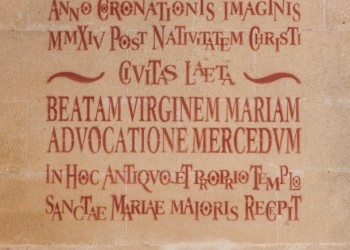 ANNO CORONATIONIS IMAGINIS
MMXIV POST NATIVITATEM CHRISTI
CIVITAS LAETA
BEATAM VIRGINEM MARIAM
ADVOCATIONE MERCEDVM
IN HOC ANTIQVO ET PROPRIO TEMPLO
SANCTAE MARIAE MAIORIS RECEPIT